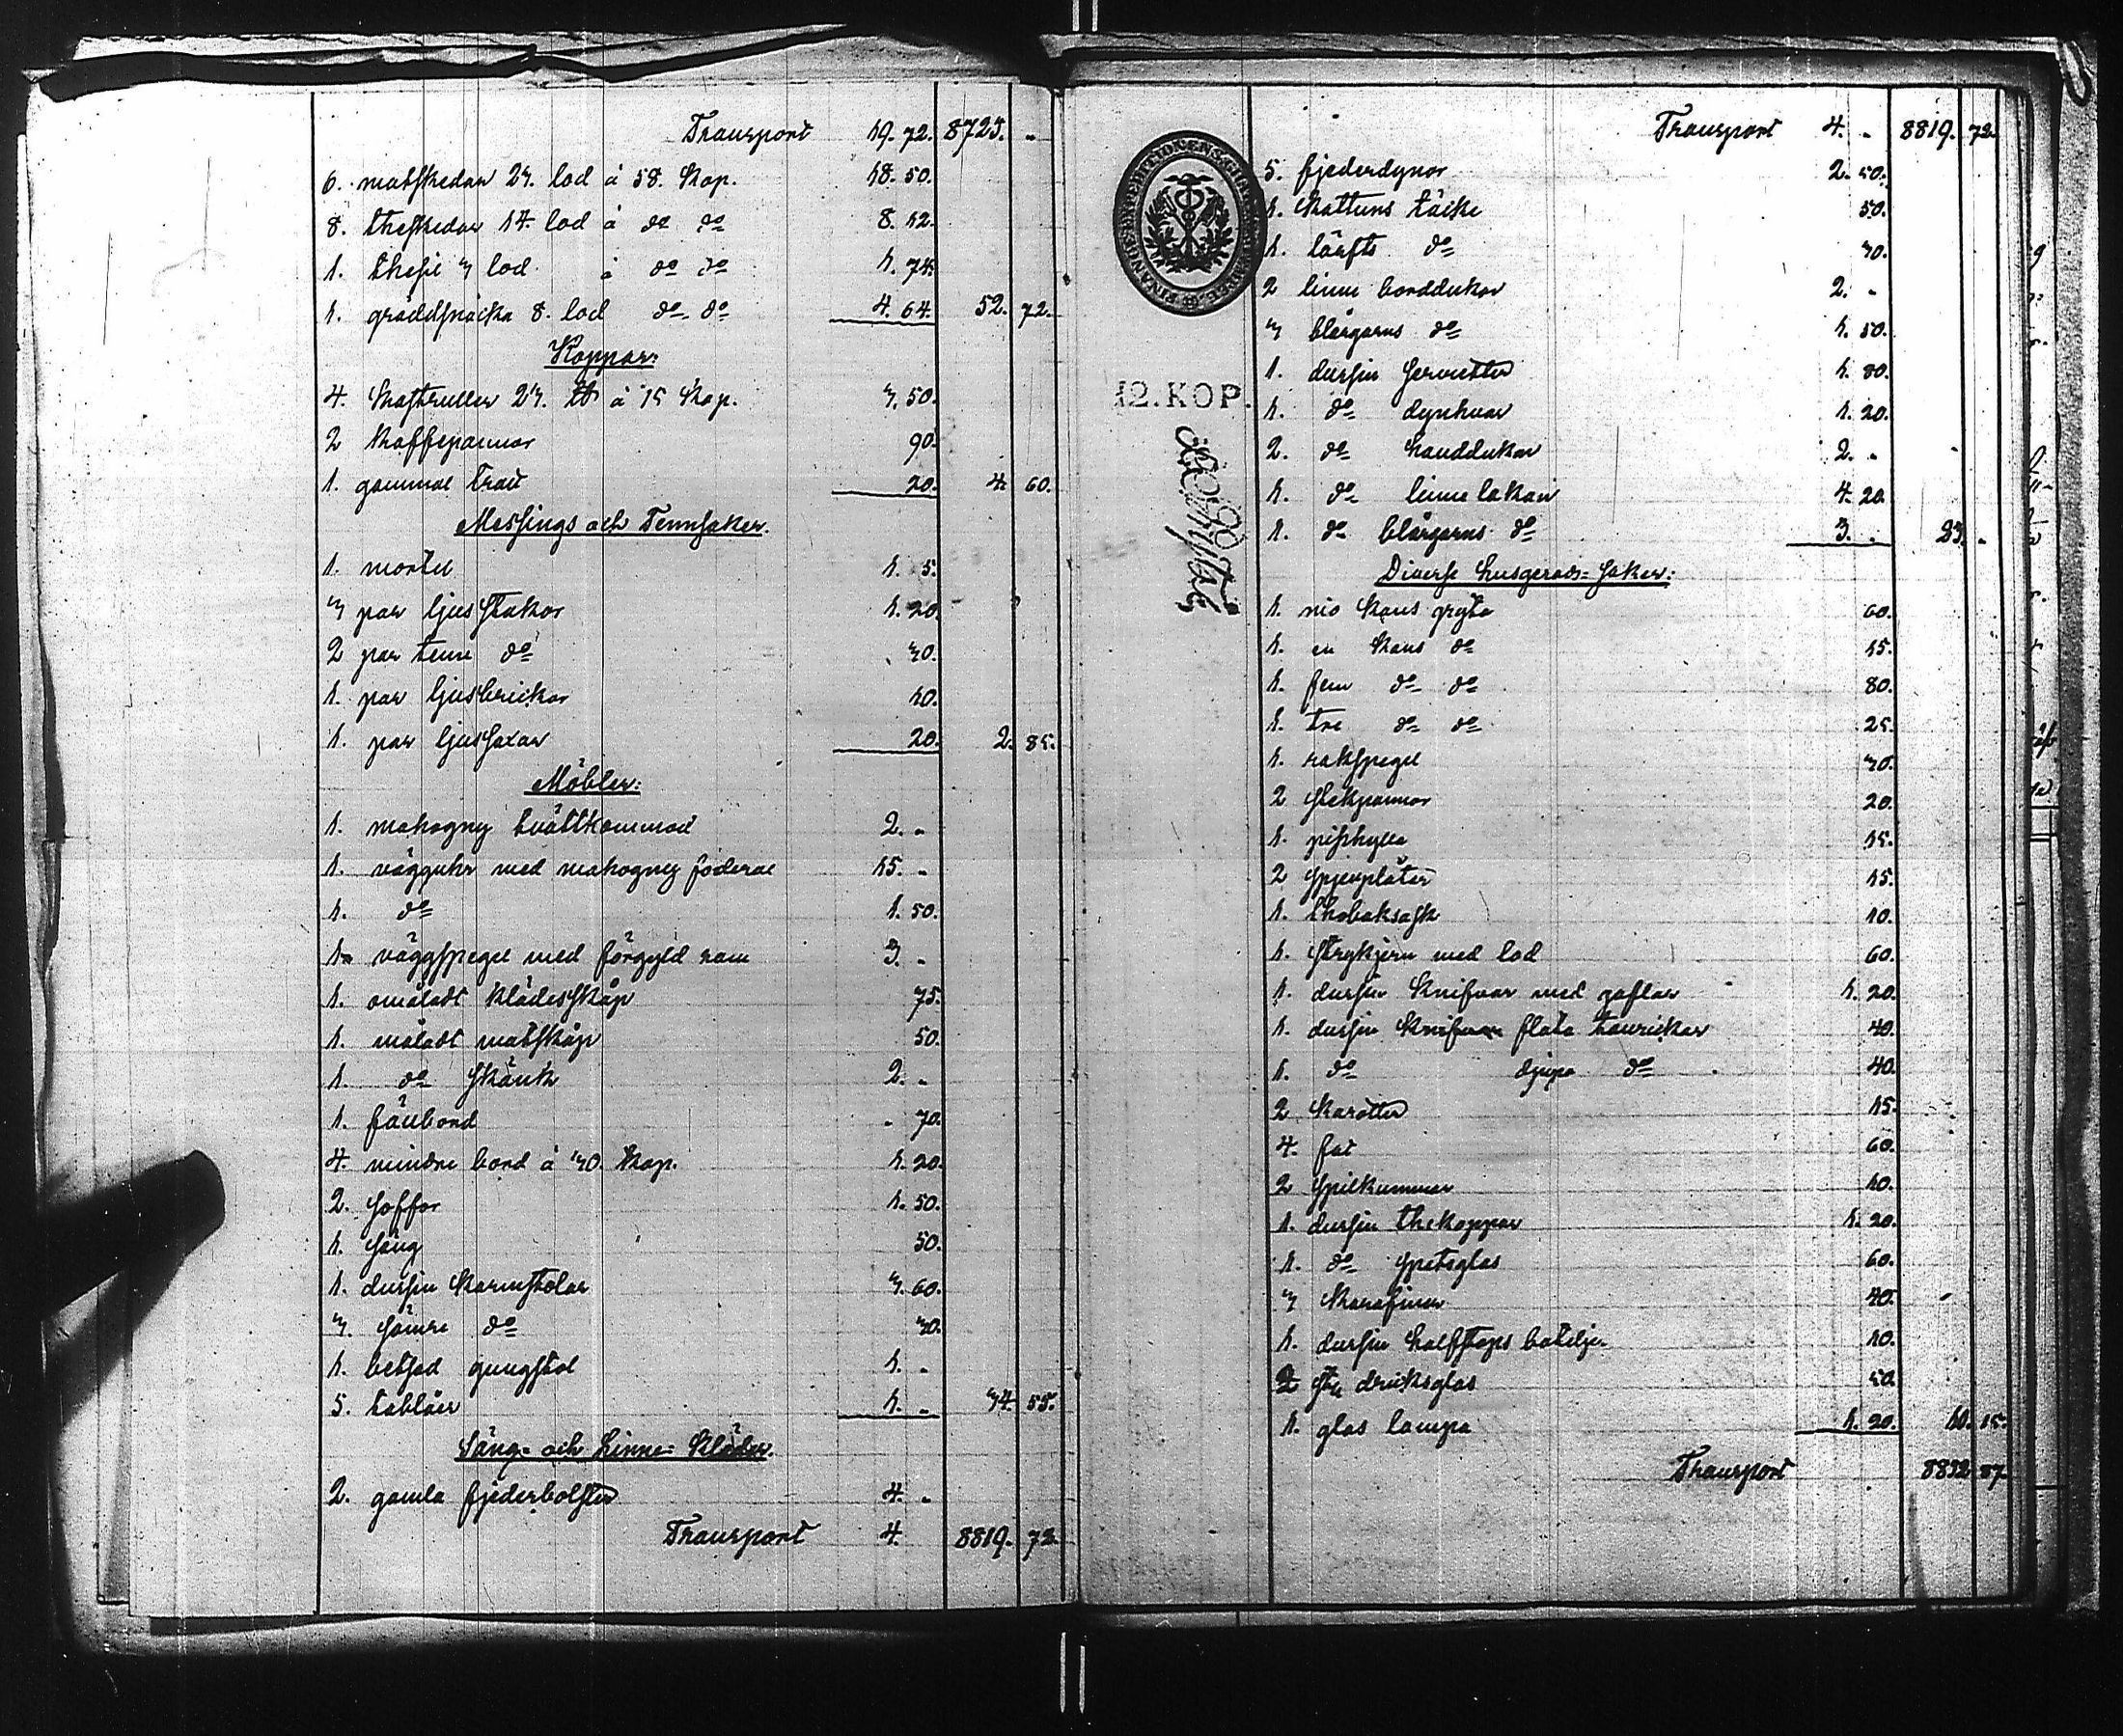 Transport 19. 72. 8725. -
6. matskedar 27. lod à 58. Kop. 18. 50.
8. theskedar 14. lod à do do 8. 12.
1. thesil 3 lod à do do 1. 74.
1. gräddsnäcka 8. lod do do 4. 64. 52. 72.
Koppar:
4. Kastruller 23. ℔ à 15 Kop. 3. 50.
2 Kaffepannor 90.
1. gammal 20. 4. 60.
Messings och Tennsaker.
1. mortel 1. 5.
3 par ljusstakar 1. 20.
2 par tenn do 30.
1. par ljusbrickor 10.
1. par ljussaxar 20. 2. 85.
Möbler:
1. mahogny tvättkommod 2. -
1. vägguhr med mahogny foderal 15. -
1. do 1. 50.
1. väggspegel med förgyld ram 3. -
1. omåladt klädesskåp 75.
1. måladt matskåp 50.
1. do skänk 2. -
1. fällbord - 70.
4. mindre bord à 30. Kop. 1. 20.
2. soffor 1. 50.
1. säng 50.
1. dussin Karmstolar 3. 60.
3. sämre do 30.
1. betsad gungstol 1. -
5. tablåer 1. - 34. 55.
Säng- och Linne- Kläder.
2. gamla fjederbolster 4. -
Transport 4. 8819. 72.
Transport 4. - 8819. 72.
12. KOP.
5. fjederdynor 2. 50.
1. Kattuns täcke 50.
1. lärfts do 30.
2 linne borddukar 2. -
3 blårgarns do 1. 50.
1. dussin servetter 1. 80.
1. do dynhvar 1. 20.
2. do handdukar 2. -
1. do linne lakan 4. 20.
1. do blårgarns do 3. - 23. -
Diverse husgeråds-saker:
1. nio Kans gryta 60.
1. en Kans do 15.
1. fem do do 80.
1. tre do do 25.
1. rakspegel 30.
2 stekpannor 20.
1. piphylla 15.
2 spjenplåter 15.
1. thobaksask 10.
1. strykjern med lod 60.
1. dussin Knifvar med gaflar 1. 20.
1. dussin Knifvar flata taurickar 40.
1. do djupa do 40.
2 Karotter 15.
4. fat 60.
2 spilkummar 10.
1. dussin thekoppar 1. 20.
1. do spetsglas 60.
3 Karafiner 40.
1. dussin halfstops botelje. 10.
2 st. dricksglas 50.
1. glas lampa 1. 20. 10. 15.
Transport 8852. 87.